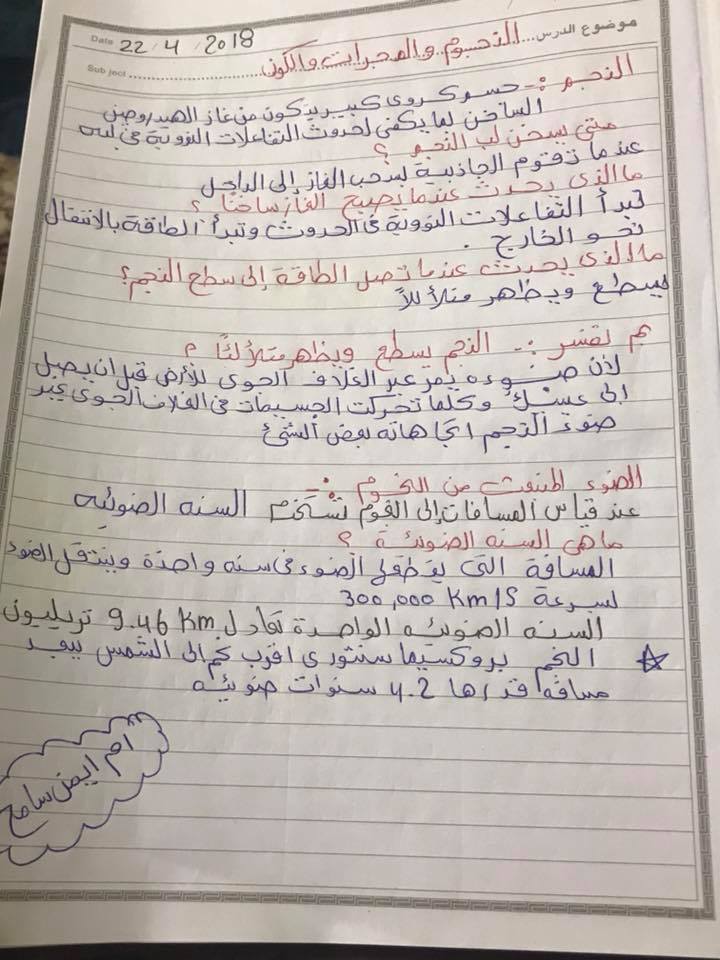 موضوع الدرس ... النجوم والمجرات والكون
Date 22/4/2018
Subject
النجم :- جسم كروي كبير يتكون من غاز الهيدروجين
الساخن لما يكفي لحدوث التفاعلات النووية في لبه
متى يسخن لب النجم ؟
عندما تقوم الجاذبية بسحب الغاز إلى الداخل
ما الذي يحدث عندما يصبح الغاز ساخنا ؟
تبدأ التفاعلات النووية في الحدوث وتبدأ الطاقة بالانتقال
نحو الخارج .
ما الذي يحدث عندما تصل الطاقة إلى سطح النجم ؟
يسطع ويظهر متلألأً
بم تفسر :- النجم يسطع ويظهر متلألئاً ؟
لأن ضوءه يمر عبر الغلاف الجوي للأرض قبل ان يصل
إلى عينيك وكلما تحركت الجسيمات في الغلاف الجوي يغير
ضوء النجم اتجاهاته بعض الشئ
الضوء المنبعث من النجوم :-
عند قياس المسافات إلى النجوم تستخدم السنه الضوئيه
ما هي السنه الضوئية ؟
المسافة التي يقطعها الضوء في سنه واحدة وينتقل الضوء
بسرعة 300,000 Km/S
السنه الضوئيه الواحدة تعادل 9.46 Km تريليون
☆ النجم بروكسيما سنتوري اقرب نجم إلى الشمس يبعد
مسافة قدرها 4.2 سنوات ضوئيه
ام ايمن سامح